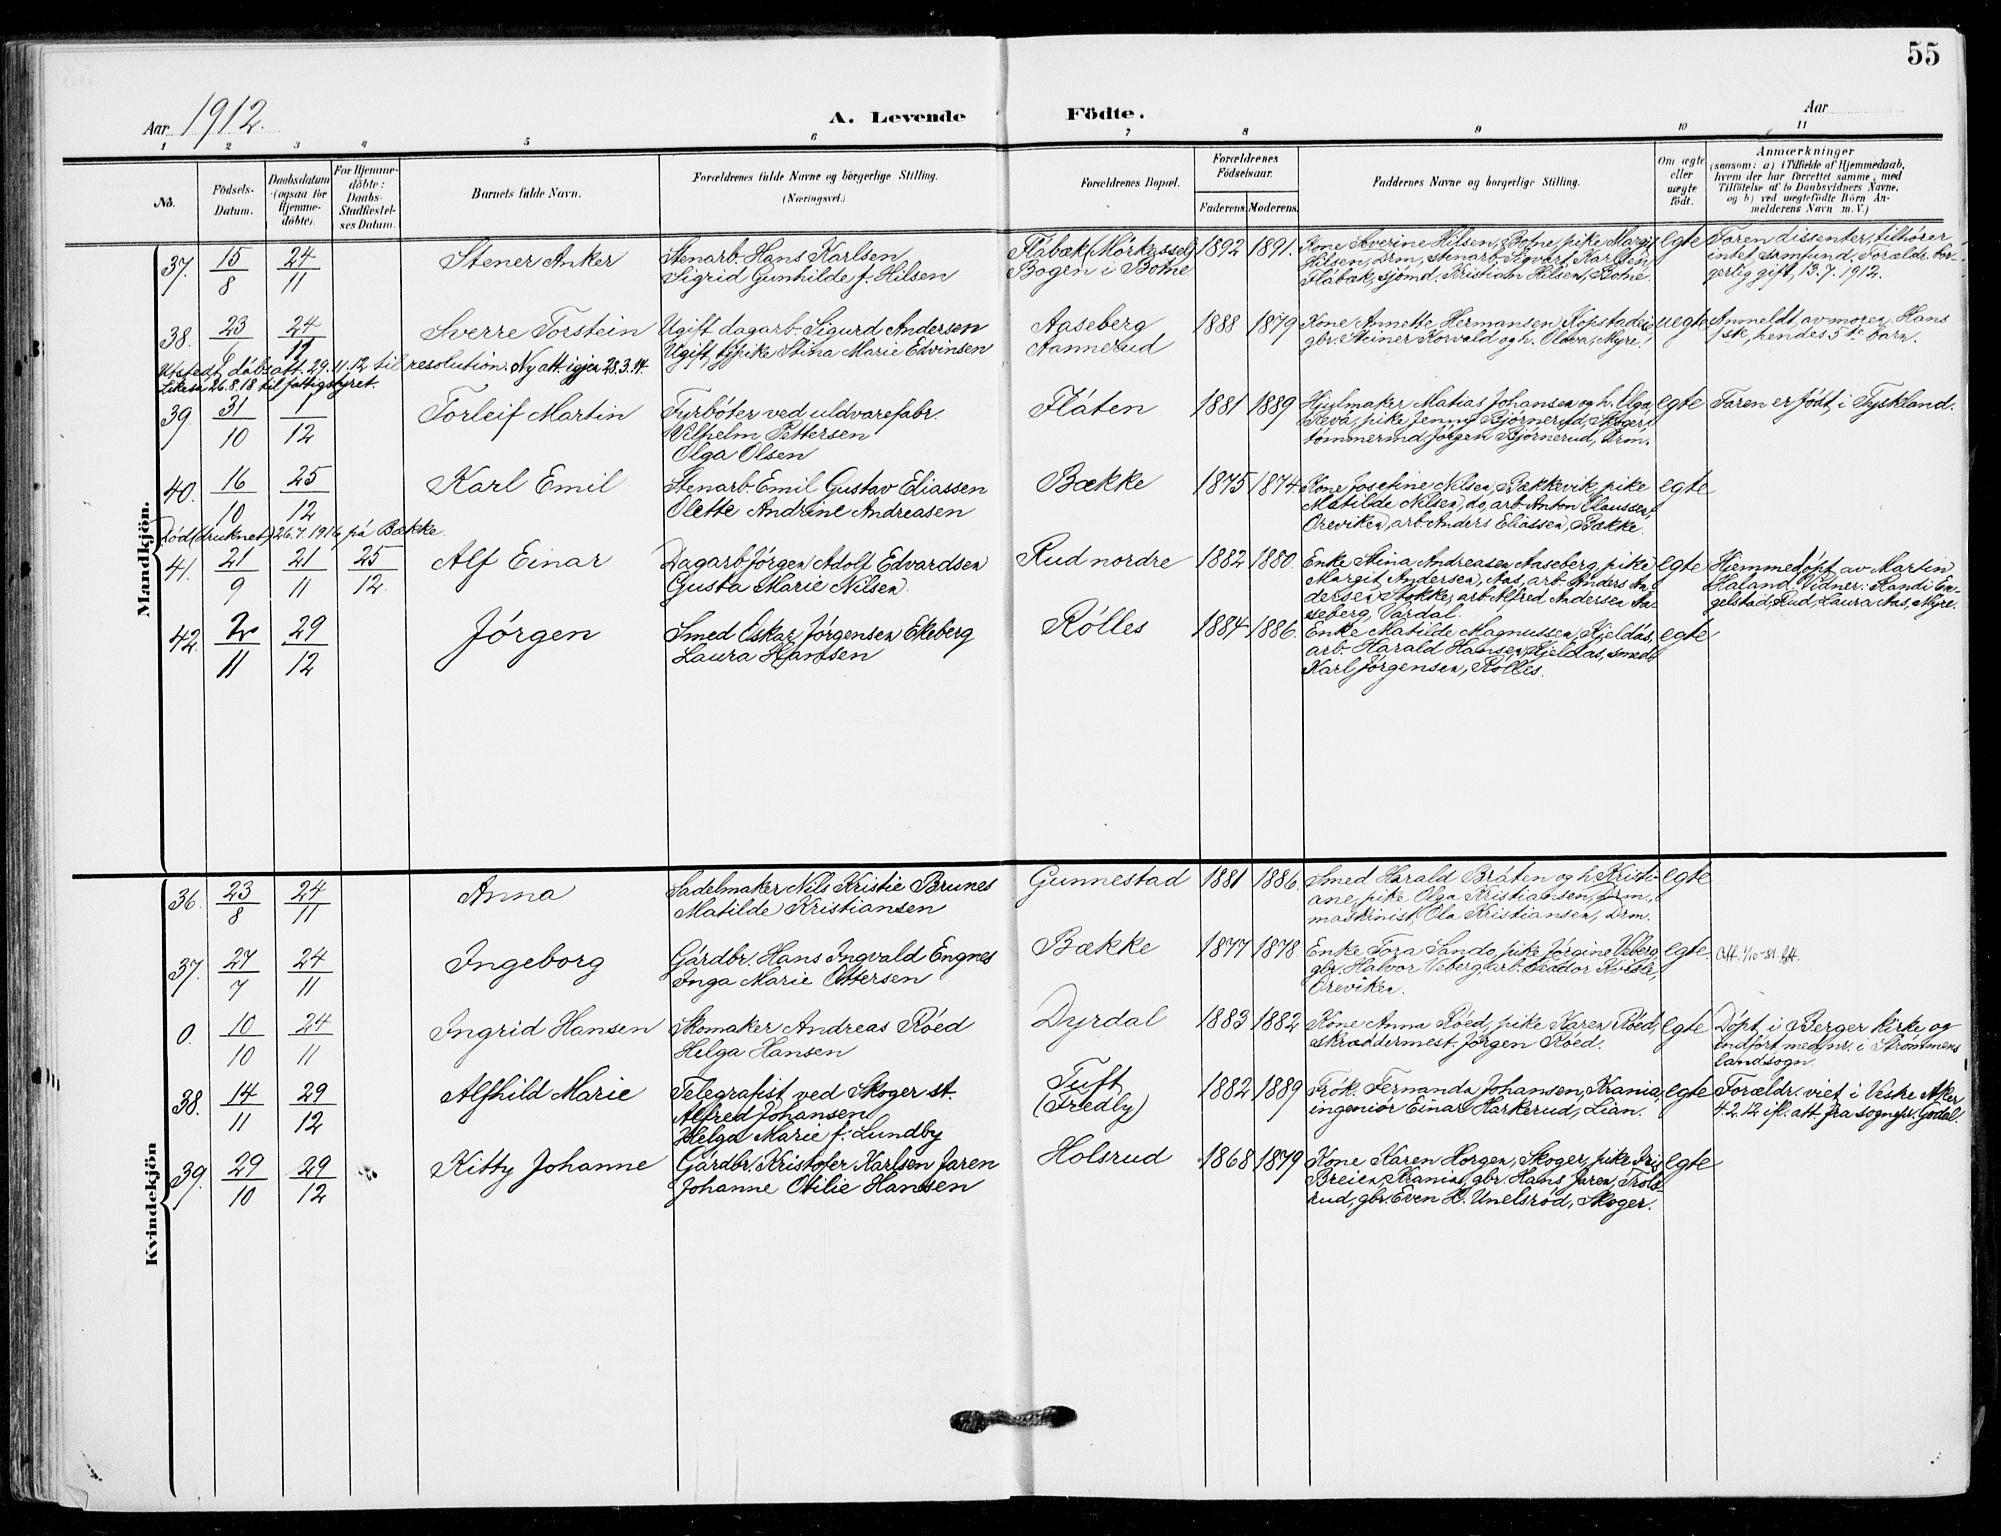 55
Aar 1912.
A. Levende Födte.
Aar
1 2 3 4 5 6 7 8 9 10 11
No.
Födsels-Datum.
Daabsdatum (ogsaa for Hjemme-döbte).
For Hjemme-döbte: Daabs-Stadfæstel-ses Datum.
Barnets fulde Navn.
Forældrenes fulde Navne og borgerlige Stilling.
(Næringsvei.)
Forældrenes Bopæl.
Forældrenes Födselsaar.
Faderens. Moderens.
Faddernes Navne og borgerlige Stilling.
Om ægte eller uægte födt.
Anmærkninger
(saasom: a) i Tilfælde af Hjemmedaab,
hvem der har forrettet samme, med
Tilföielse af to Daabsvidners Navne,
og b) ved uægtefödte Börn An-
melderens Navn m. V.)
Mandkjön.
37. 15/8 24/11 Stener Anker
Stenarb. Hans Karlsen
Sigrid Gunhilde f. Hilsen
Flåbæk (Mörkassel)
Bogen i Botne
1892 1891.
Kone Severine Hilsen, Botne, pike Margit
Hilsen, Drm, stenarb. Sigvart Karlsen,
Flåbæk, sjømd. Kristian Hilsen, Botne.
egte
Faren dissenter, tilhører
intet samfund, Forældr. bor-
gerlig gift, 13.7.1912.
38. 23 24/12 Sverre Torstein
Ugift dagarb. Sigurd Andersen
Ugift tj.pike Stina Marie Edvinsen
Aaseberg
Aannerud
1888 1879
Kone Annette Hermansen Kopstadeie
gbr. Steiner Korvald og h. Olava, Myre.
uegte
Anmeldt av moren, Hans
hendes 5te barn.
Utstedt dåbsatt. 29.11.12 til resolution. Ny att igjen 28.3.14.
Likeså 26.8.18 til fattigstyret.
39. 31/10 1/12 Torleif Martin
Fyrbøter ved uldvarefabr.
Vilhelm Pettersen
Olga Olsen
Flåten
1881 1889
Hjulmaker Matias Johansen og h. Olga,
Reva, pike Jenny Bjørnerud, Skoger,
tømmermd Jørgen Bjørnerud, Drm.
egte
Faren er född i Tyskland.
40. 16/10 25/12 Karl Emil
Stenarb. Emil Gustav Eliassen
Olette Andrine Andreasen
Bække
1875 1874
Kone Josefine Nilsen, Bækkevik, pike
Matilde Nilsen, do, arb. Anton Claussen,
Oreviken, arb. Anders Eliassen, Bække.
egte
Död (druknet) 26.7.1916 på Bække.
41. 21/9 21/11 25/12. Alf Einar
Dagarb. Jörgen Adolf Edvardsen
Gusta Marie Nilsen.
Rud nordre
1882 1880.
Enke Stina Andreasen Aaseberg, pike
Margit Andersen, Aas, arb. Anders An-
dersen Stokke, arb. Alfred Andersen Aa-
seberg, Vårdal.
egte
Hjemmedøpt av Martin
Haland. Vidner: Randi En-
gelstad, Rud, Laura Aas, Myre.
42. 2/11 29/12 Jörgen
Smed Oskar Jørgensen Ekeberg
Laura Hansen
Rølles
1884 1886.
Enke Matilde Magnussen, Kjeldås,
arb. Harald Hansen, Kjeldås, smed
Karl Jørgensen, Rølles.
egte
Kvindekjön
36. 23/8 24/11 Anna
Sadelmaker Nils Kristie Brunes
Matilde Kristiansen
Gunnestad
1881 1886.
Smed Harald Bråten og h. Kristi-
ane, pike Olga Kristiansen, Drm,
maskinist Ola Kristiansen, Drm.
egte
37. 27/7 24/11 Ingeborg
Gårdbr. Hans Ingvald Engnes
Inga Marie Ottersen
Bække
1877 1878.
Enke Tora Sando, pike Jörgine Veberg,
gbr. Halvor Veberg, arb. Teodor Kvisle,
Oreviken.
egte
0. 10/10 24/11 Ingrid Hansen
Skomaker Andreas Röed
Helga Hansen
Dyrdal
1883 1882
Kone Anna Röed, pike Karen Röed,
skræddermest. Jörgen Röed.
egte
Döpt i Berger kirke og
indfört med nr. i Strömmens
landsogn.
38. 14/11 29/12 Alfhild Marie
Telegrafist ved Skoger st.
Alfred Johansen
Helga Marie f. Lundby
Tuft
(Fredly)
1882 1889
Frök. Fernanda Johansen, Krania,
ingeniör Einar Harkerud, Lian.
egte
Forældr. viet i Veske Aker
4.2.12 ifl. att. fra sognepr. Godal.
39. 29/10 29/12 Kitty Johanne
Gårdbr. Kristofer Karlsen Jaren
Johanne Otilie Hansen
Holsrud
1868 1879
Kone Karen Horgen, Skoger, pike Iris
Breien, Krania, gbr. Hans Jaren, Trols-
rud, gbr. Even H. Unelsröd, Skoger.
egte